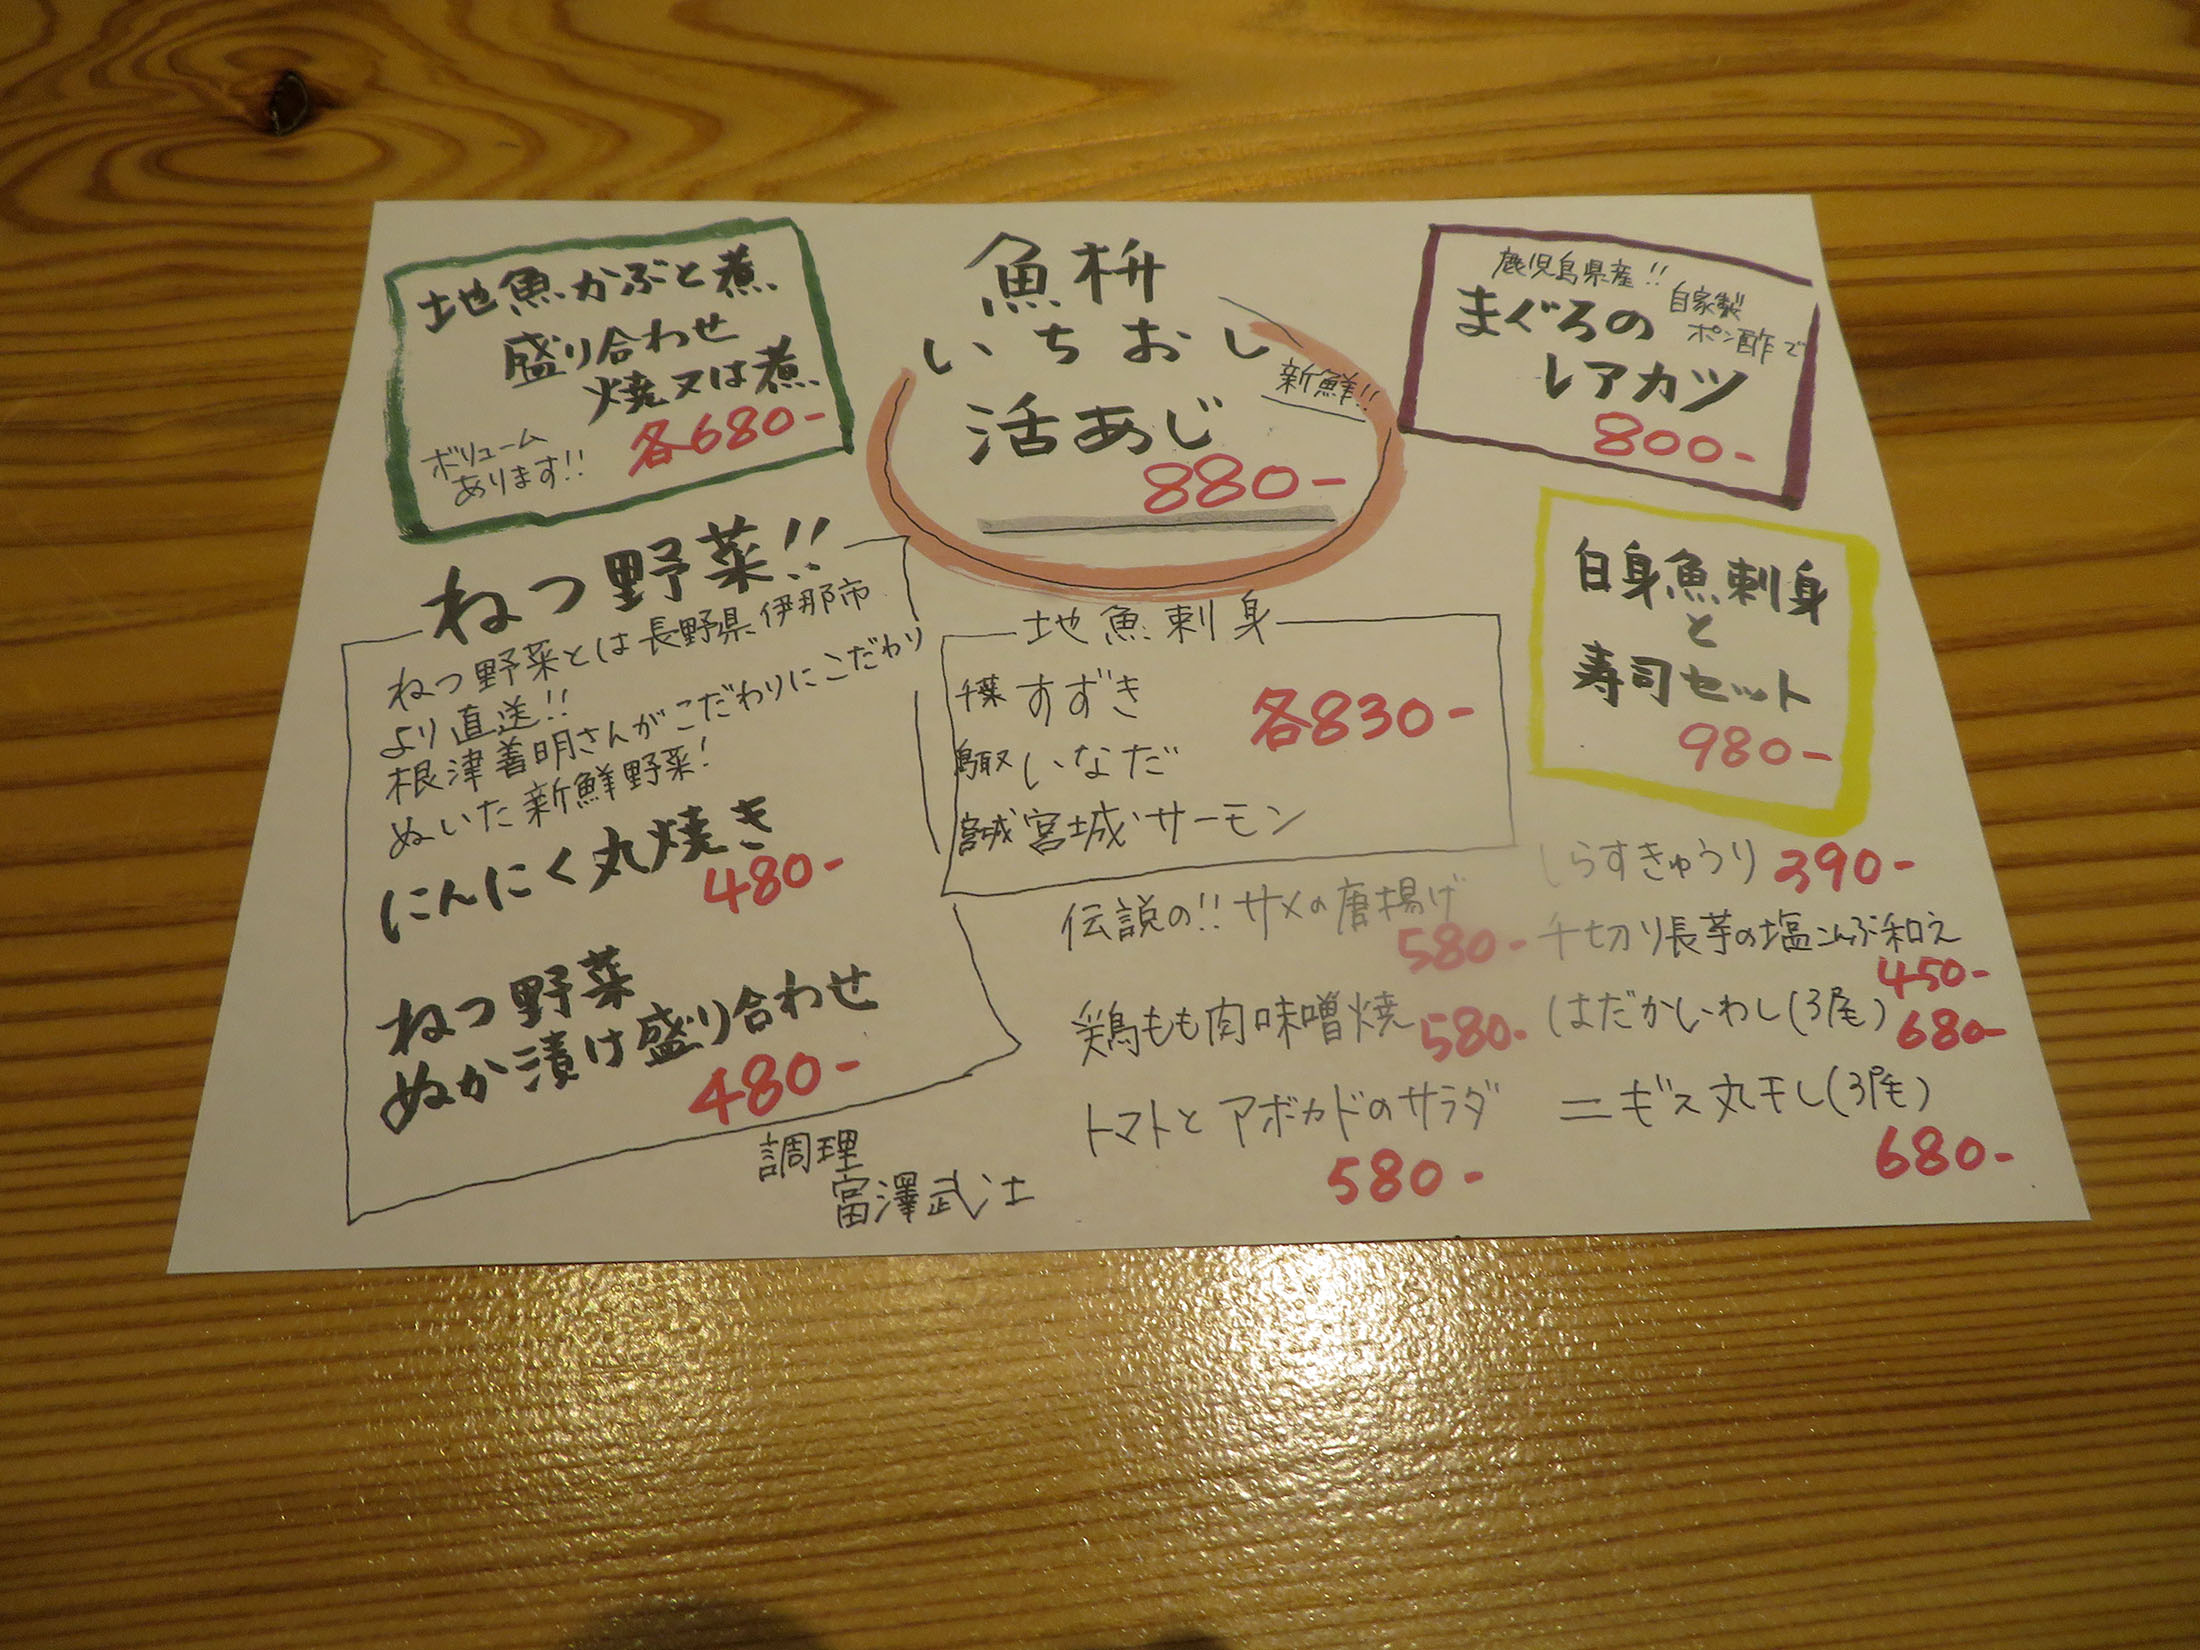 地魚かぶと煮
盛り合わせ
焼又は煮
各680-
ボリューム
あります!!
魚枡
いちおし
新鮮!!
活あじ
880-
鹿児島県産!!
まぐろの
自家製
ポン酢で
レアカツ
800-
白身魚刺身
と
寿司セット
980-
ねつ野菜!!
ねつ野菜とは長野県伊那市
より直送!!
根津善明さんがこだわりにこだわり
ぬいた新鮮野菜!
にんにく丸焼き
480-
ねつ野菜
ぬか漬け盛り合わせ
480-
地魚刺身
千葉 すずき
鳥取 いなだ
宮城 宮城サーモン
各830-
伝説の!!サメの唐揚げ
580-
鶏もも肉味噌焼 580-
トマトとアボカドのサラダ
580-
しらすきゅうり 390-
千切り長芋の塩こんぶ和え
450-
はだかいわし(3尾) 680-
ニギス丸干し(3尾)
680-
調理
富澤武士